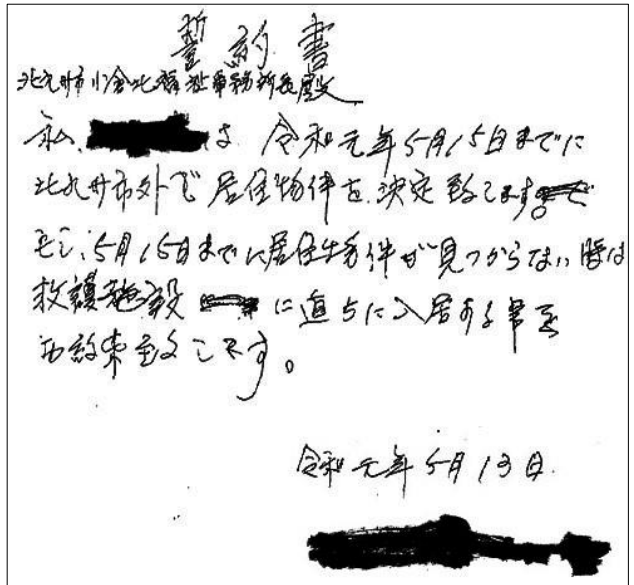 誓約書
北九州市小倉北福祉事務所長殿
私、は、令和元年5月15日までに
北九州市外で居住物件を決定致します。
もし、5月15日までに居住物件が見つからない時は
救護施設に直ちに入居する事を
お約束致します。
令和元年5月13日